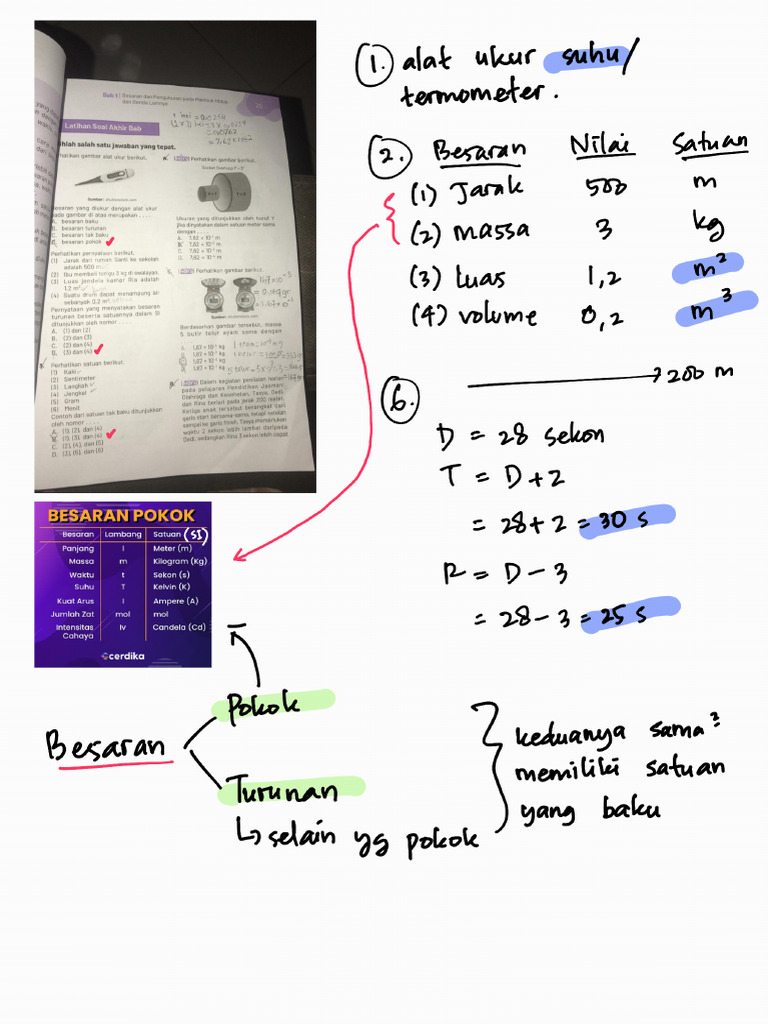 Bab 1 | Besaran dan Pengukuran pada Makhluk Hidup
dan Benda Lainnya
25
Latihan Soal Akhir Bab
lihlah salah satu jawaban yang tepat.
hatikan gambar alat ukur berikut.
Sumber: shutterstock.com
Besaran yang diukur dengan alat ukur
pada gambar di atas merupakan . . . .
A. besaran baku
B. besaran turunan
C. besaran tak baku
D. besaran pokok
Perhatikan pernyataan berikut.
(1) Jarak dari rumah Santi ke sekolah
adalah 500 m
(2) Ibu membeli terigu 3 kg di swalayan.
(3) Luas jendela kamar Ria adalah
1,2 m²
(4) Suatu drum dapat menampung air
sebanyak 0,2 m³
Pernyataan yang menyatakan besaran
turunan beserta satuannya dalam SI
ditunjukkan oleh nomor . . . .
A. (1) dan (2)
B. (2) dan (3)
C. (2) dan (4)
D. (3) dan (4)
Perhatikan satuan berikut.
(1) Kaki
(2) Sentimeter
(3) Langkah
(4) Jengkal
(5) Gram
(6) Menit
Contoh dari satuan tak baku ditunjukkan
oleh nomor . . . .
A. (1), (2), dan (4)
B. (1), (3), dan (4)
C. (2), (4), dan (5)
D. (3), (5), dan (6)
Perhatikan gambar berikut.
Ukuran yang ditunjukkan oleh huruf Y
jika dinyatakan dalam satuan meter sama
dengan . . . .
Perhatikan gambar berikut.
Berdasarkan gambar tersebut, massa
5 butir telur ayam sama dengan
Dalam kegiatan penilaian harian
pada pelajaran Pendidikan Jasmani,
Olahraga dan Kesehatan, Tasya, Dedi,
dan Rina berlari pada jarak 200 meter.
Ketiga anak tersebut berangkat dari
garis start bersama-sama, tetapi setelah
sampai ke garis finish, Tasya memerlukan
waktu 2 sekon lebih lambat daripada
Dedi, sedangkan Rina 3 sekon lebih cepat
1. alat ukur suhu/
termometer.
2. Besaran Nilai Satuan
(1) Jarak 500 m
(2) massa 3 kg
(3) luas 1,2 m²
(4) volume 0,2 m³
6. 200 m
D = 28 sekon
T = D + 2
= 28 + 2 = 30 s
R = D - 3
= 28 - 3 = 25 s
BESARAN POKOK
Besaran Lambang Satuan (SI)
Panjang l Meter (m)
Massa m Kilogram (Kg)
Waktu t Sekon (s)
Suhu T Kelvin (K)
Kuat Arus I Ampere (A)
Jumlah Zat mol mol
Intensitas Cahaya Iv Candela (Cd)
cerdika
Besaran
Pokok
Turunan
↳ selain yg pokok
keduanya sama²
memiliki satuan
yang baku